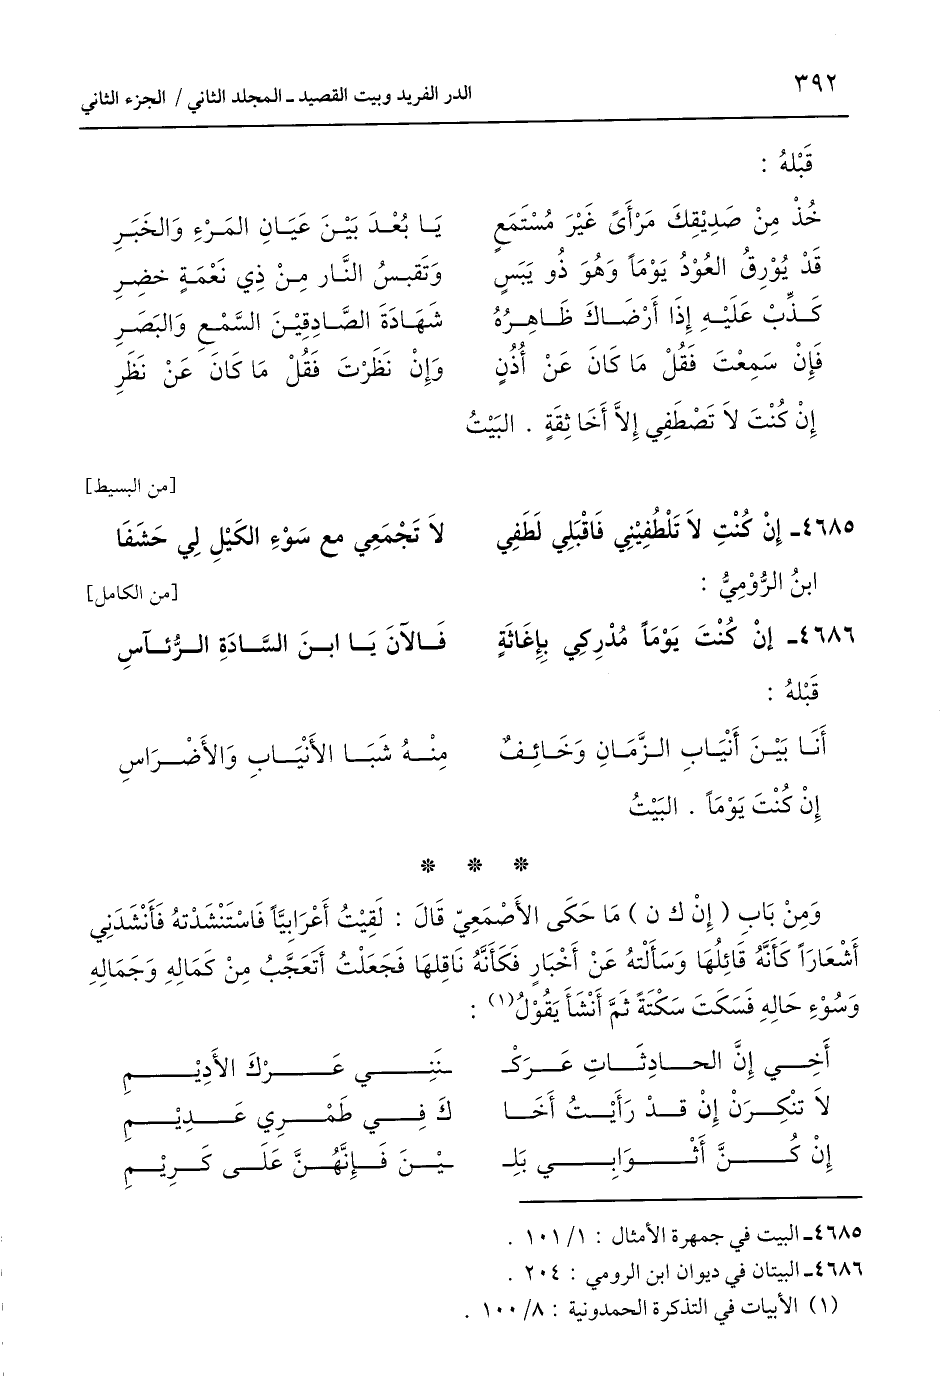 ٣٩٢ الدر الفريد وبيت القصيد ـ المجلد الثاني / الجزء الثاني
قَبْلهُ :
خُذْ مِنْ صَدِيْقِكَ مَرْأَىً غَيْرَ مُسْتَمَعٍ يَا بُعْدَ بَيْنَ عَيَانِ المَرْءِ وَالخَبَرِ
قَدْ يُوْرِقُ العُوْدُ يَوْماً وَهُوَ ذُو يَبَسٍ وَتَقبسُ النَّار مِنْ ذِي نَعْمَةٍ خضِرِ
كَذِّبْ عَلَيْهِ إِذَا أَرْضَاكَ ظَاهِرُهُ شَهَادَةَ الصَّادِقِيْنَ السَّمْعِ وَالبَصَرِ
فَإِنْ سَمِعْتَ فَقُلْ مَا كَانَ عَنْ أُذُنٍ وَإِنْ نَظَرْتَ فَقُلْ مَا كَانَ عَنْ نَظَرِ
إِنْ كُنْتَ لاَ تَصْطَفِي إِلاَّ أَخَا ثِقَةٍ . البَيْتُ
[من البسيط]
٤٦٨٥ـ إِنْ كُنْتِ لاَ تَلْطُفِيْنِي فَاقْبَلِي لَطَفِي لاَ تَجْمَعِي مع سَوْءِ الكَيْلِ لِي حَشَفَا
ابنُ الرُّوْمِيُّ : [من الكامل]
٤٦٨٦ـ إِنْ كُنْتَ يَوْمَاً مُدْرِكِي بِإِغَاثَةٍ فَالآنَ يَا ابنَ السَّادَةِ الرُّئآسِ
قَبْلهُ :
أَنَا بَيْنَ أَنْيَابِ الزَّمَانِ وَخَائِفٌ مِنْهُ شَبَا الأَنْيَابِ وَالأَضْرَاسِ
إِنْ كُنْتَ يَوْمَاً . البَيْتُ
* * *
وَمِنْ بَابِ ( إِنْ ك ن ) مَا حَكَى الأَصْمَعِيّ قَالَ : لَقِيْتُ أَعْرَابِيَّاً فَاسْتَنْشَدْتهُ فَأَنْشَدَنِي
أَشْعَاراً كَأَنَّهُ قَائِلُهَا وَسَأَلتهُ عَنْ أَخْبَارٍ فَكَأَنَّهُ نَاقِلهَا فَجَعَلْتُ أَتَعَجَّبُ مِنْ كَمَالِهِ وَجَمَالِهِ
وَسُوْءِ حَالِهِ فَسَكَتَ سَكْتَةً ثمَّ أَنْشَأَ يَقُوْلُ(١) :
أَخِي إِنَّ الحَادثَاتِ عَرَكْـ ـنَنِي عَرْكَ الأَدِيْمِ
لاَ تنْكِرَنْ إِنْ قَدْ رَأَيْتُ أَخَا كَ فِي طمْرِي عَدِيْمِ
إِنْ كُنَّ أَثْوَابِي بَلِـ ـيْنَ فَإِنَّهُنَّ عَلَى كَرِيْمِ
٤٦٨٥ـ البيت في جمهرة الأمثال : ١/ ١٠١ .
٤٦٨٦ـ البيتان في ديوان ابن الرومي : ٢٠٤ .
(١) الأبيات في التذكرة الحمدونية : ٨/ ١٠٠ .